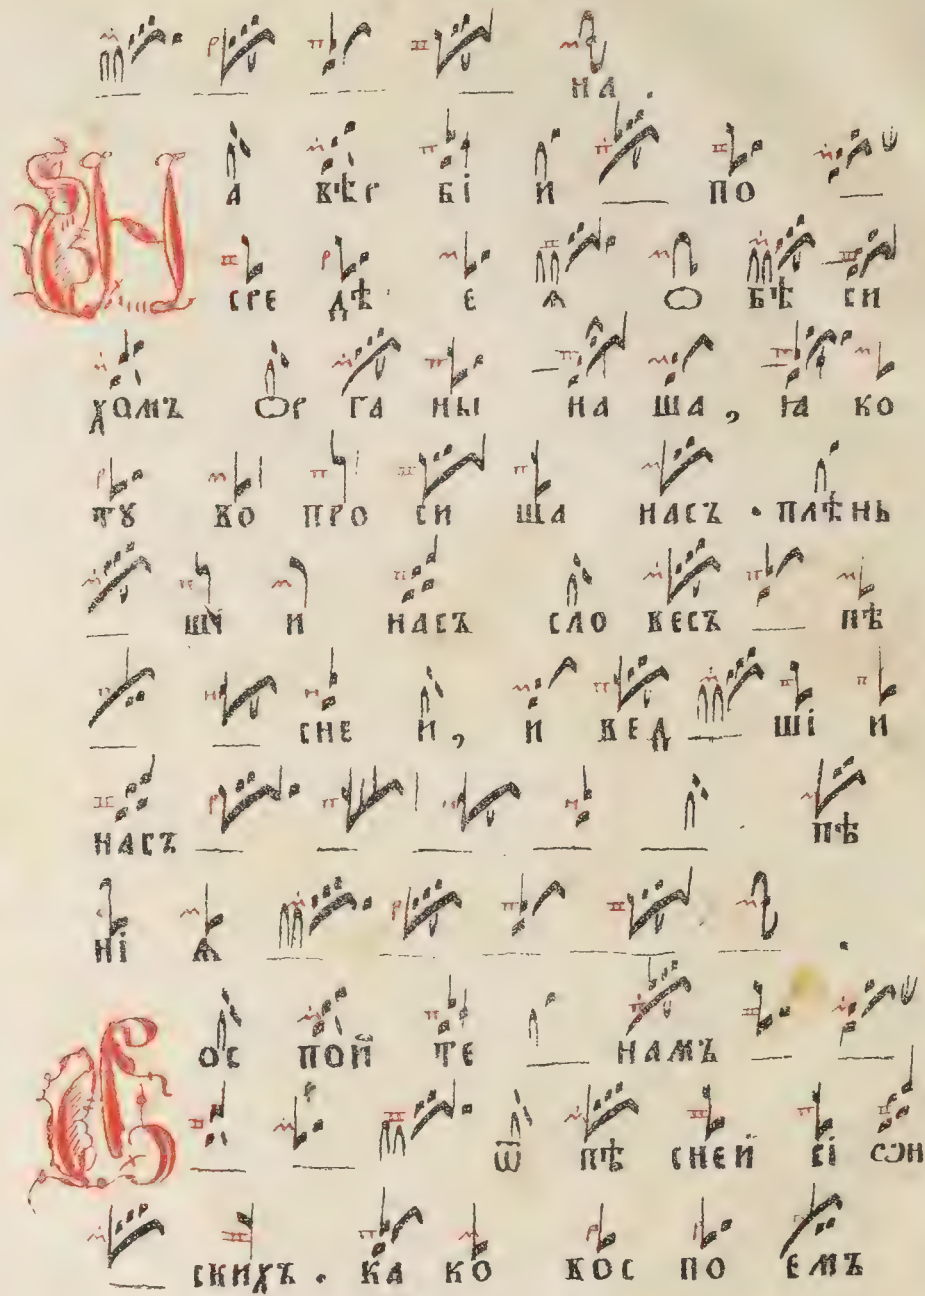 на.
На вѣр бі и по
сре дѣ е ѧ о бѣ си
хомъ Ор га ны на ша, ꙗ ко
тꙋ во про си ша насъ. плѣнь
ши и насъ сло весъ пѣ
сне и, и вед ші и
насъ пѣ
ні ѧ .
Вос пой те намъ
ѿ пѣ сней сі ѡн
скихъ. ка ко вос по емъ